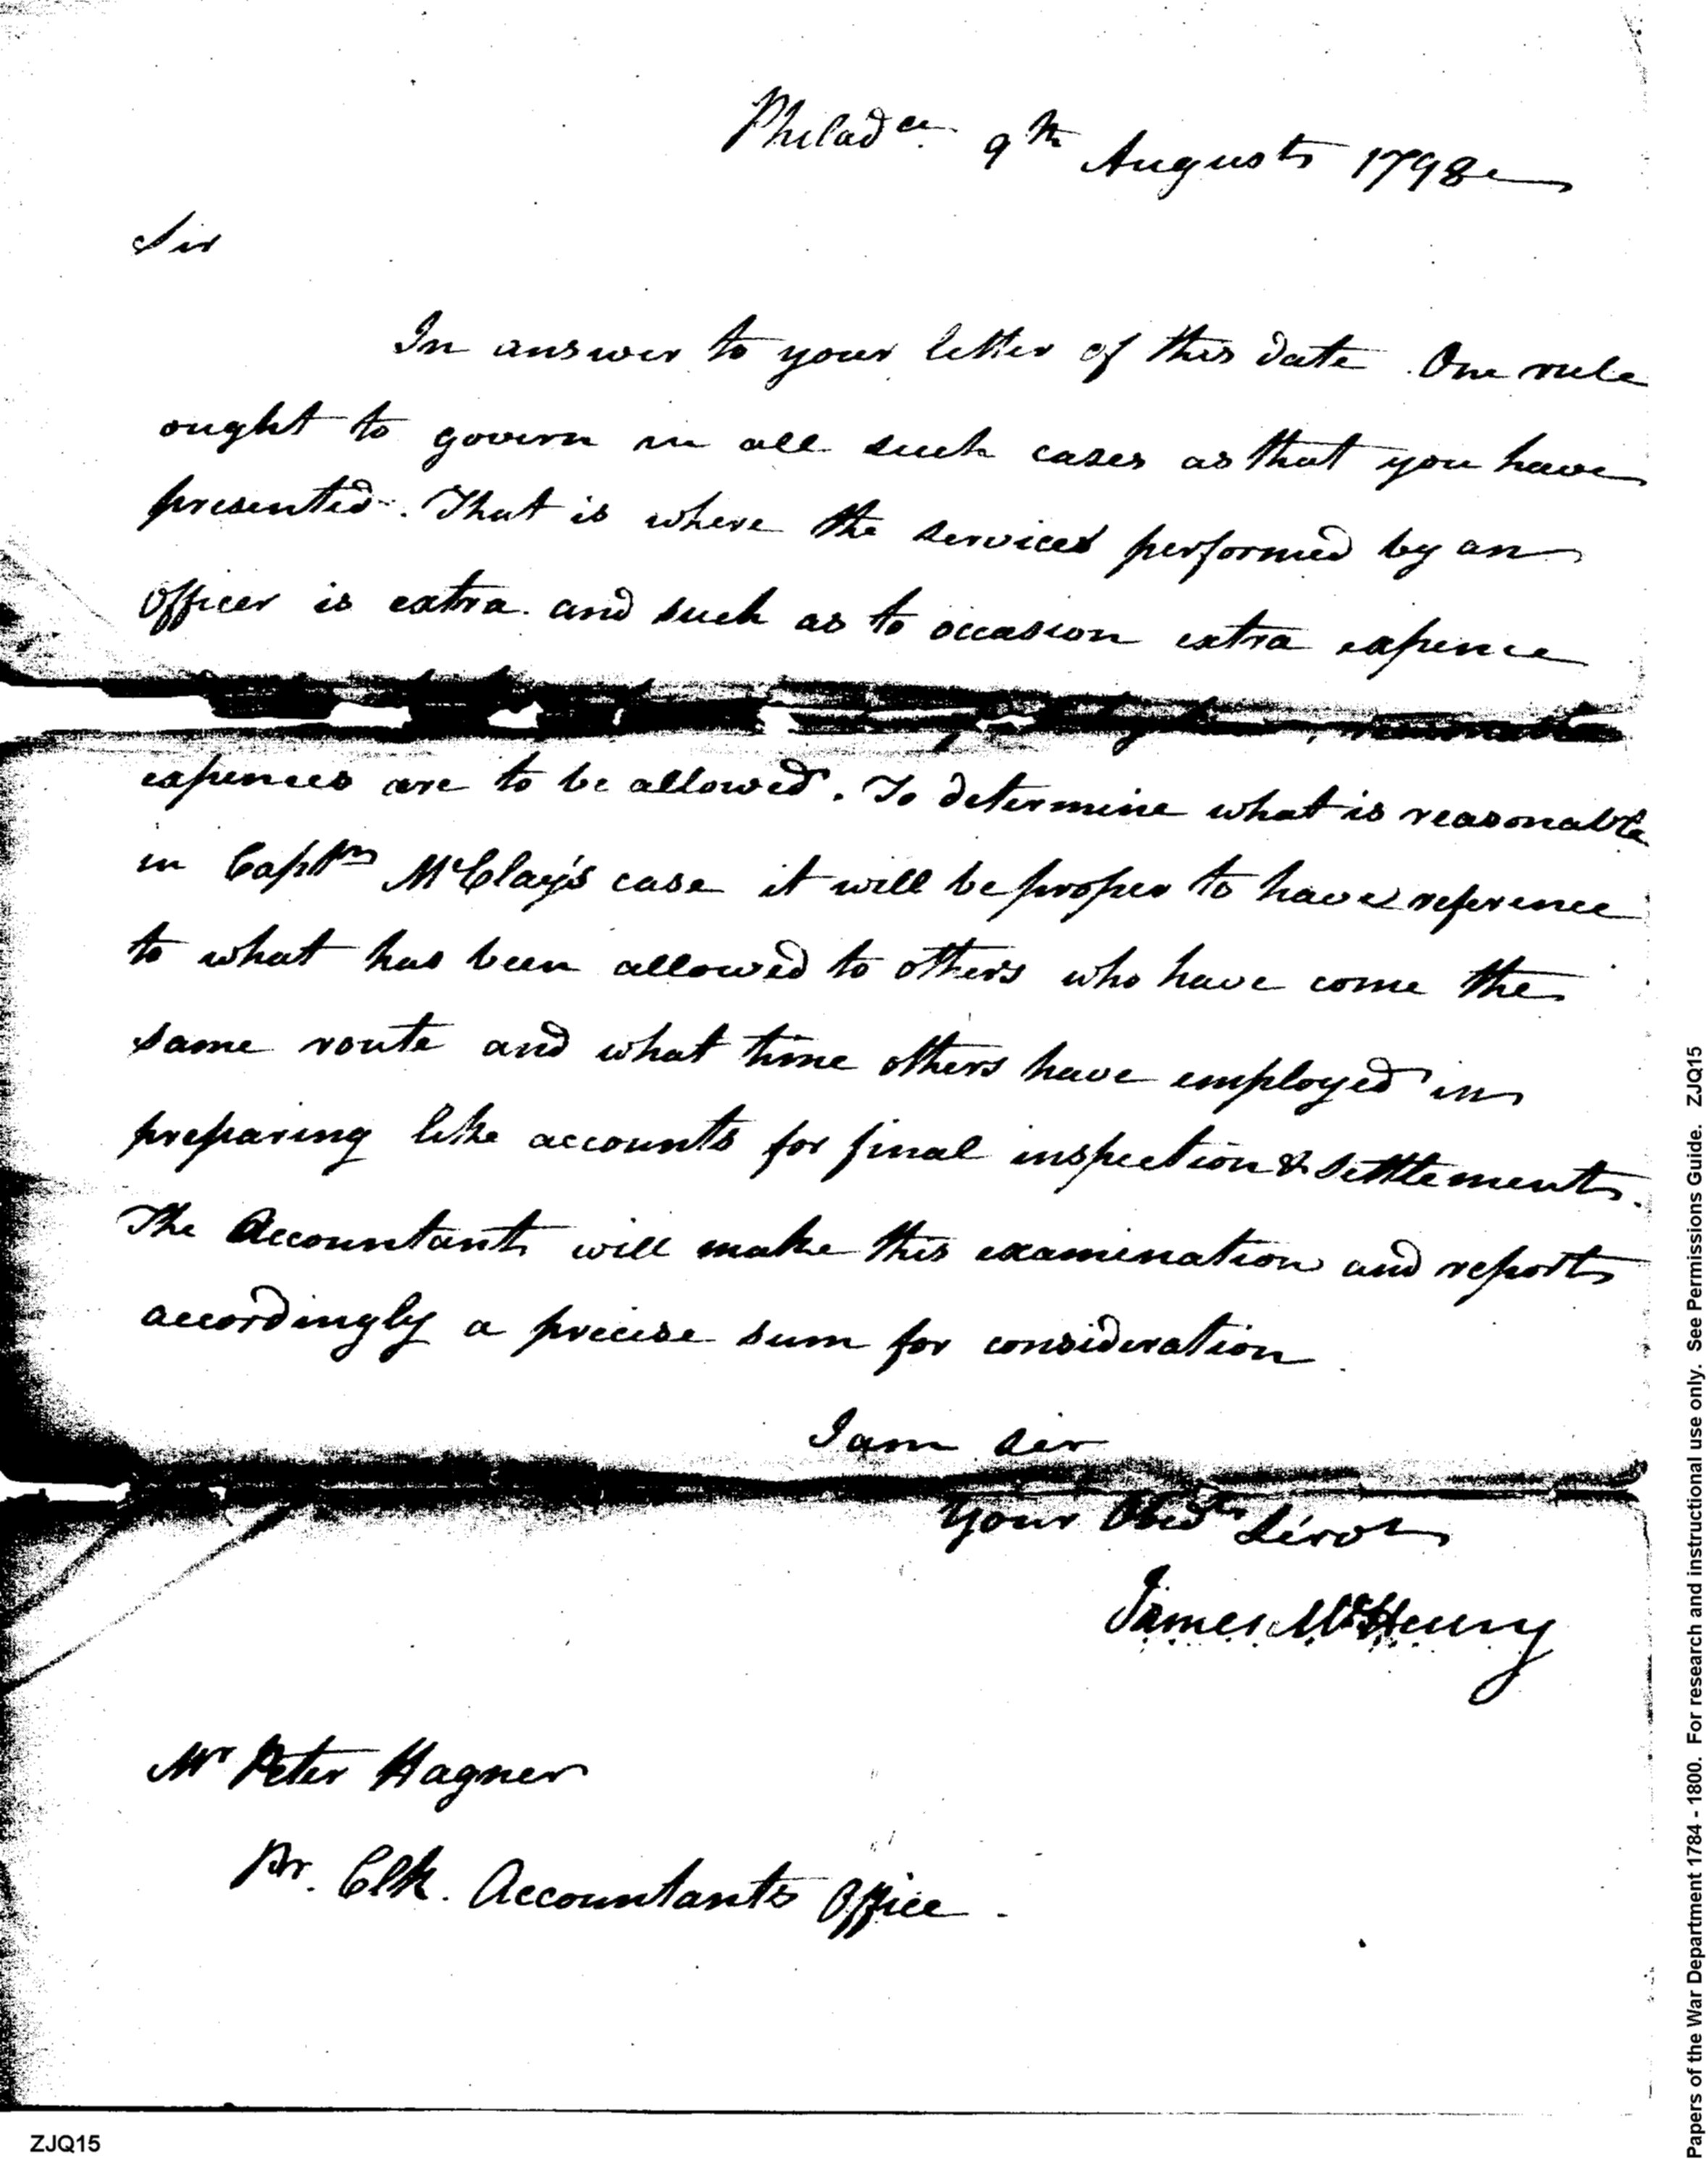 Philada. 9th August 1798
Sir
In answer to your letter of this date. One rule
ought to govern in all such cases as that you have
presented. That is where the services performed by an
Officer is extra and such as to occasion extra expence
reasonable
expences are to be allowed. To determine what is reasonable
in Captn McClay's case it will be proper to have reference
to what has been allowed to others who have come the
same route and what time others have employed in
preparing like accounts for final inspection & settlement.
The Accountant will make this examination and report
accordingly a precise sum for consideration.
I am sir
Your Obedt. Servt
James McHenry
Mr Peter Hagner
Pr. Clk. Accountants Office.
ZJQ15
Papers of the War Department 1784 - 1800. For research and instructional use only. See Permissions Guide. ZJQ15